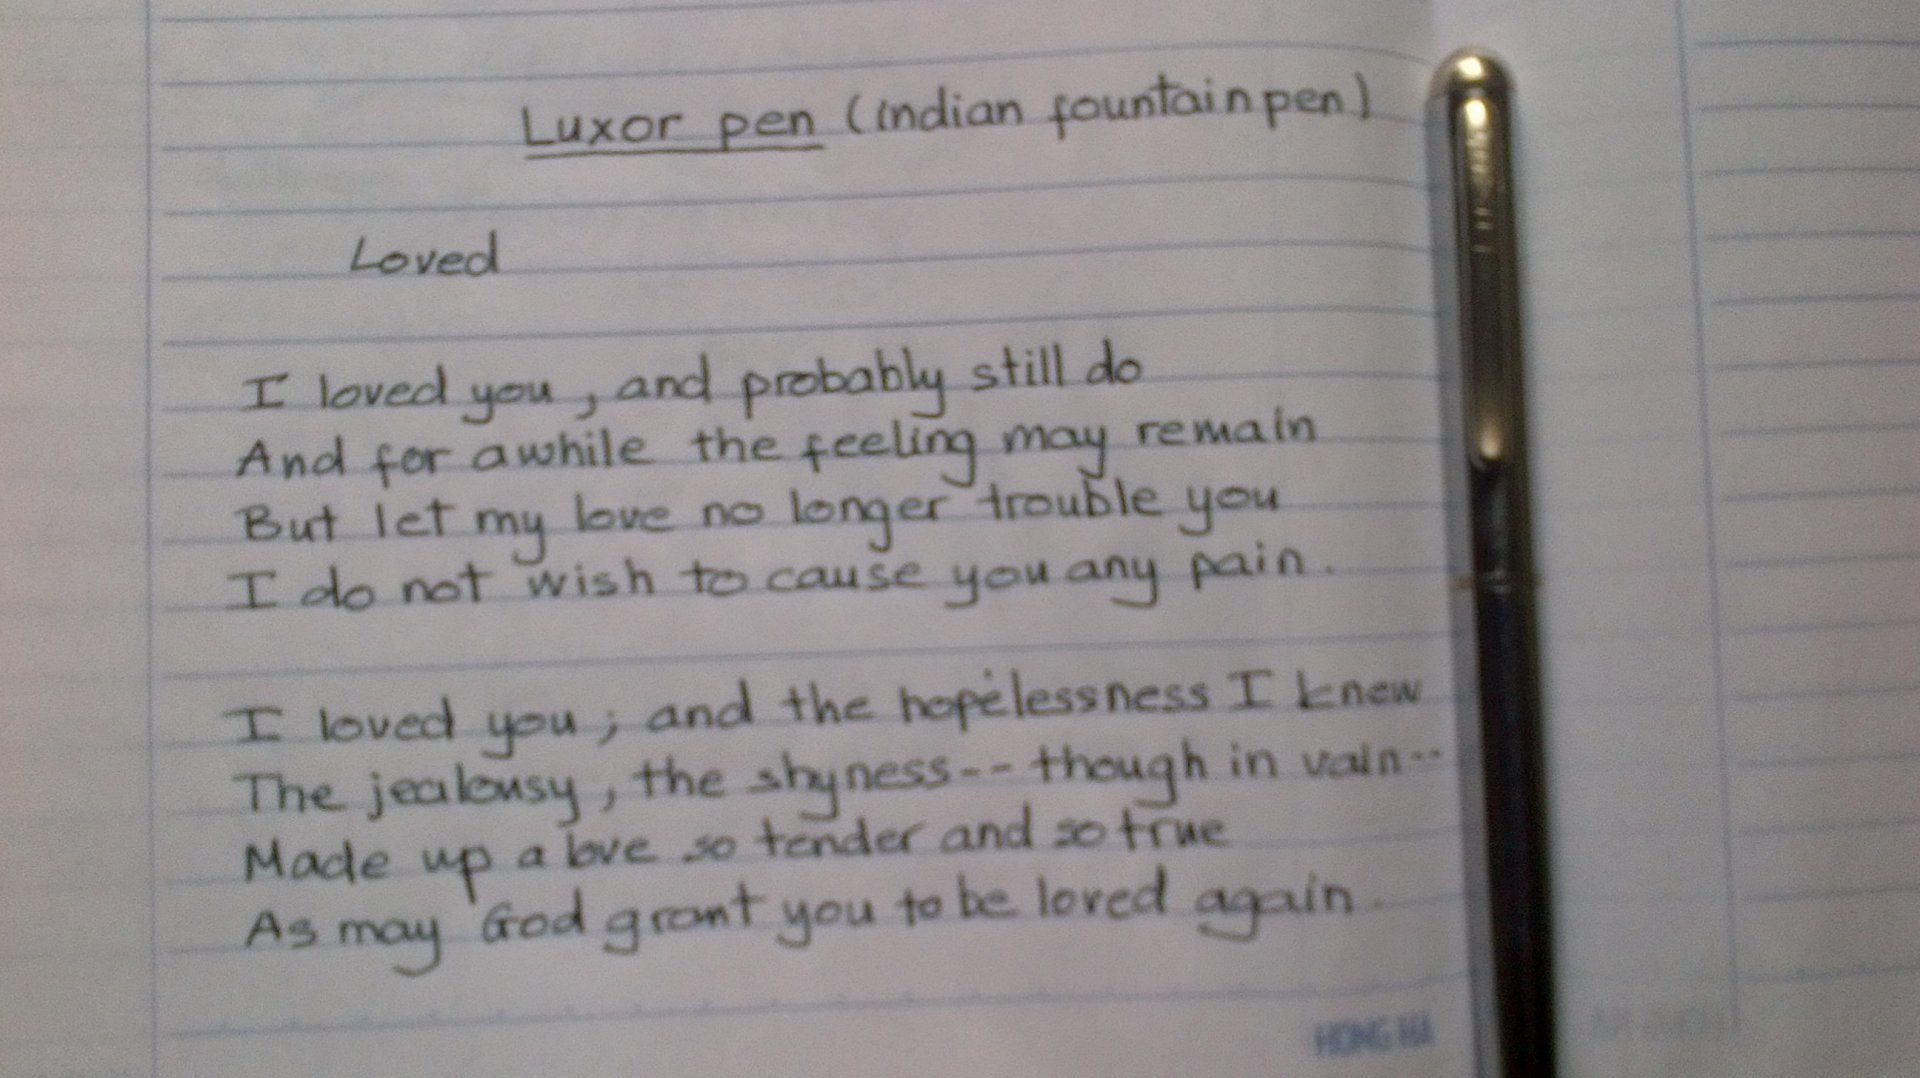 Luxor pen (Indian fountain pen)
Loved
I loved you, and probably still do
And for awhile the feeling may remain
But let my love no longer trouble you
I do not wish to cause you any pain.
I loved you; and the hopelessness I knew
The jealousy, the shyness -- though in vain --
Made up a love so tender and so true
As may God grant you to be loved again.
HONG HA